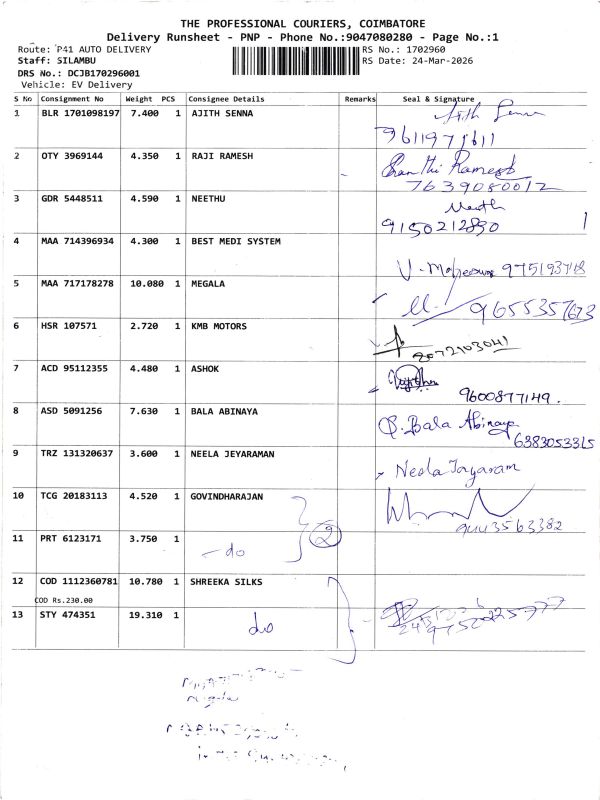 THE PROFESSIONAL COURIERS, COIMBATORE
Delivery Runsheet - PNP - Phone No.:9047080280 - Page No.:1
Route: P41 AUTO DELIVERY
RS No.: 1702960
Staff: SILAMBU
RS Date: 24-Mar-2026
DRS No.: DCJB170296001
Vehicle: EV Delivery
S No Consignment No Weight PCS Consignee Details Remarks Seal & Signature
1 BLR 1701098197 7.400 1 AJITH SENNA
9611971611
2 OTY 3969144 4.350 1 RAJI RAMESH Shanthi Ramesh
7639080012
3 GDR 5448511 4.590 1 NEETHU Neeth
9150212890
4 MAA 714396934 4.300 1 BEST MEDI SYSTEM
5 MAA 717178278 10.080 1 MEGALA
9655357673
6 HSR 107571 2.720 1 KMB MOTORS
8072103041
7 ACD 95112355 4.480 1 ASHOK
9600877149.
8 ASD 5091256 7.630 1 BALA ABINAYA B. Bala Abinaya
6383053315
9 TRZ 131320637 3.600 1 NEELA JEYARAMAN Neela Jayaram
10 TCG 20183113 4.520 1 GOVINDHARAJAN
9443563382
11 PRT 6123171 3.750 1 - do 2
12 COD 1112360781 10.780 1 SHREEKA SILKS
COD Rs.230.00
13 STY 474351 19.310 1 do